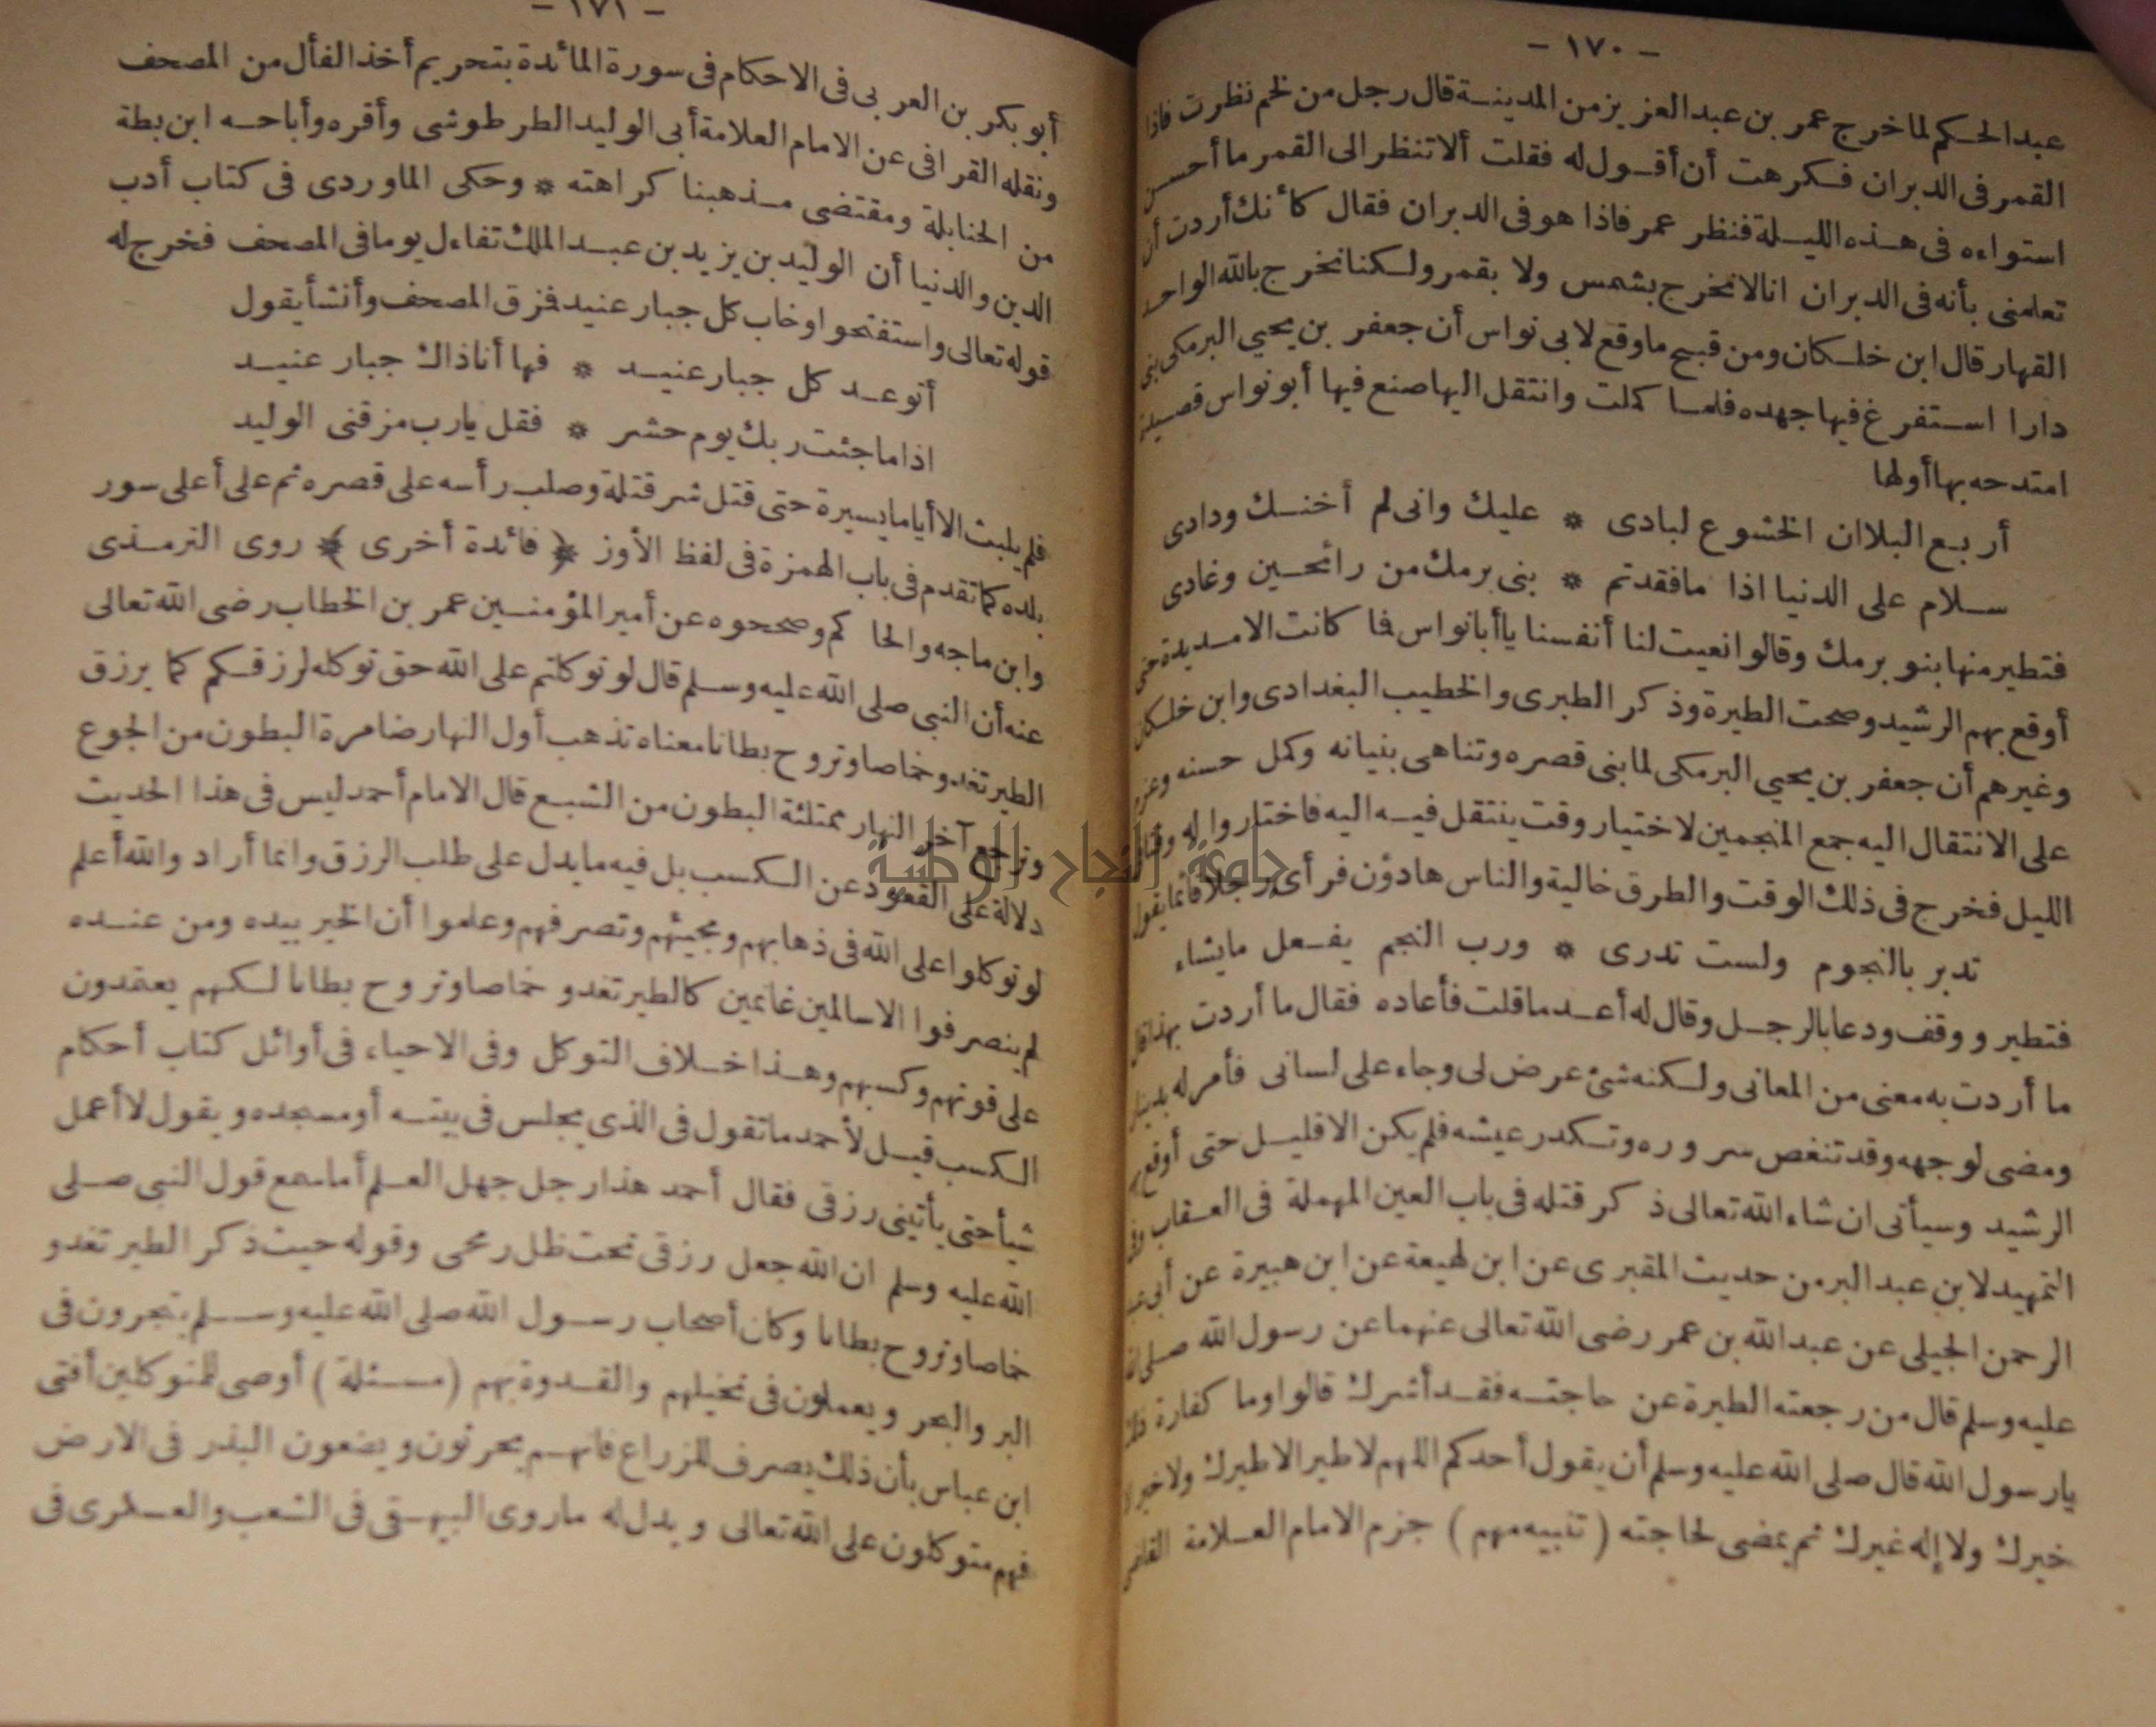 - ١٧٠ -
عبد الحكم لما خرج عمر بن عبد العزيز من المدينة قال رجل من لخم نظرت فاذا
القمر فى الدبران فكرهت أن أقول له فقلت ألا تنظر الى القمر ما أحسن
استواءه فى هذه الليلة فنظر عمر فاذا هو فى الدبران فقال كأنك أردت أن
تعلمنى بأنه فى الدبران انا لا نخرج بشمس ولا بقمر ولكنا نخرج بالله الواحد
القهار قال ابن خلكان ومن قبيح ما وقع لابى نواس أن جعفر بن يحيى البرمكى بنى
دارا استفرغ فيها جهده فلما كملت وانتقل اليها صنع فيها أبو نواس قصيدة
امتدحه بها أولها
أربع البلا ان الخشوع لبادى * عليك وانى لم أخنك ودادى
سلام على الدنيا اذا ما فقدتم * بنى برمك من رائحين وغادى
فتطير منها بنو برمك وقالوا نعيت لنا أنفسنا يا أبا نواس فما كانت الا مديدة حتى
أوقع بهم الرشيد وصحت الطيرة وذكر الطبرى والخطيب البغدادى وابن خلكان
وغيرهم أن جعفر بن يحيى البرمكى لما بنى قصره وتناهى بنيانه وكمل حسنه وعزم
على الانتقال اليه جمع المنجمين لاختيار وقت ينتقل فيه اليه فاختاروا له وقتا
الليل فخرج فى ذلك الوقت والطرق خالية والناس هادؤن فرأى رجلا قائما يقول
تدبر بالنجوم ولست تدرى * ورب النجم يفعل ما يشاء
فتطير ووقف ودعا بالرجل وقال له أعد ما قلت فأعاده فقال ما أردت بهذا قال
ما أردت به معنى من المعانى ولكنه شئ عرض لى وجاء على لسانى فأمر له بدينار
ومضى لوجهه وقد تنغص سروره وتكدر عيشه فلم يكن الا قليل حتى أوقع بهم
الرشيد وسيأتى ان شاء الله تعالى ذكر قتله فى باب العين المهملة فى العقاب
التمهيد لابن عبد البر من حديث المقبرى عن ابن لهيعة عن ابن هبيرة عن أبى عبد
الرحمن الجيلى عن عبد الله بن عمر رضى الله تعالى عنهما عن رسول الله صلى الله
عليه وسلم قال من رجعته الطيرة عن حاجته فقد أشرك قالوا وما كفارة ذلك
يا رسول الله قال صلى الله عليه وسلم أن يقول أحدكم اللهم لا طير الا طيرك ولا خير الا
خيرك ولا إله غيرك ثم يمضى لحاجته (تنبيه مهم) جزم الامام العلامة القاضى
- ١٧١ -
أبو بكر بن العربى فى الاحكام فى سورة المائدة بتحريم أخذ الفأل من المصحف
ونقله القرافى عن الامام العلامة أبى الوليد الطرطوشى وأقره وأباحه ابن بطة
من الحنابلة ومقتضى مذهبنا كراهته * وحكى الماوردى فى كتاب أدب
الدين والدنيا أن الوليد بن يزيد بن عبد الملك تفاءل يوما فى المصحف فخرج له
قوله تعالى واستفتحوا وخاب كل جبار عنيد فمزق المصحف وأنشأ يقول
أتوعد كل جبار عنيد * فها أنا ذاك جبار عنيد
اذا ما جئت ربك يوم حشر * فقل يا رب مزقنى الوليد
فلم يلبث الا أياما يسيرة حتى قتل شر قتلة وصلب رأسه على قصره ثم على أعلى سور
بلده كما تقدم فى باب الهمزة فى لفظ الأوز ﴿فائدة أخرى﴾ روى الترمذى
وابن ماجه والحاكم وصححوه عن أمير المؤمنين عمر بن الخطاب رضى الله تعالى
عنه أن النبى صلى الله عليه وسلم قال لو توكلتم على الله حق توكله لرزقكم كما يرزق
الطير تغدو خماصا وتروح بطانا معناه تذهب أول النهار ضامرة البطون من الجوع
وترجع آخر النهار ممتلئة البطون من الشبع قال الامام أحمد ليس فى هذا الحديث
دلالة على القعود عن الكسب بل فيه ما يدل على طلب الرزق وانما أراد والله أعلم
لو توكلوا على الله فى ذهابهم ومجيئهم وتصرفهم وعلموا أن الخير بيده ومن عنده
لم ينصرفوا الا سالمين غانمين كالطير تغدو خماصا وتروح بطانا لكنهم يعتمدون
على قوتهم وكسبهم وهذا خلاف التوكل وفى الاحياء فى أوائل كتاب أحكام
الكسب قيل لأحمد ما تقول فى الذى يجلس فى بيته أو مسجده ويقول لا أعمل
شيأ حتى يأتينى رزقى فقال أحمد هذا رجل جهل العلم أما سمع قول النبى صلى
الله عليه وسلم ان الله جعل رزقى تحت ظل رمحى وقوله حيث ذكر الطير تغدو
خماصا وتروح بطانا وكان أصحاب رسول الله صلى الله عليه وسلم يتجرون فى
البر والبحر ويعملون فى نخيلهم والقدوة بهم (مسئلة) أوصى للمتوكلين أفتى
ابن عباس بأن ذلك يصرف للزراع فانهم يحرثون ويضعون البذر فى الارض
فهم متوكلون على الله تعالى ويدل له ما روى البيهقى فى الشعب والعسكرى فى
جامعة النجاح الوطنية